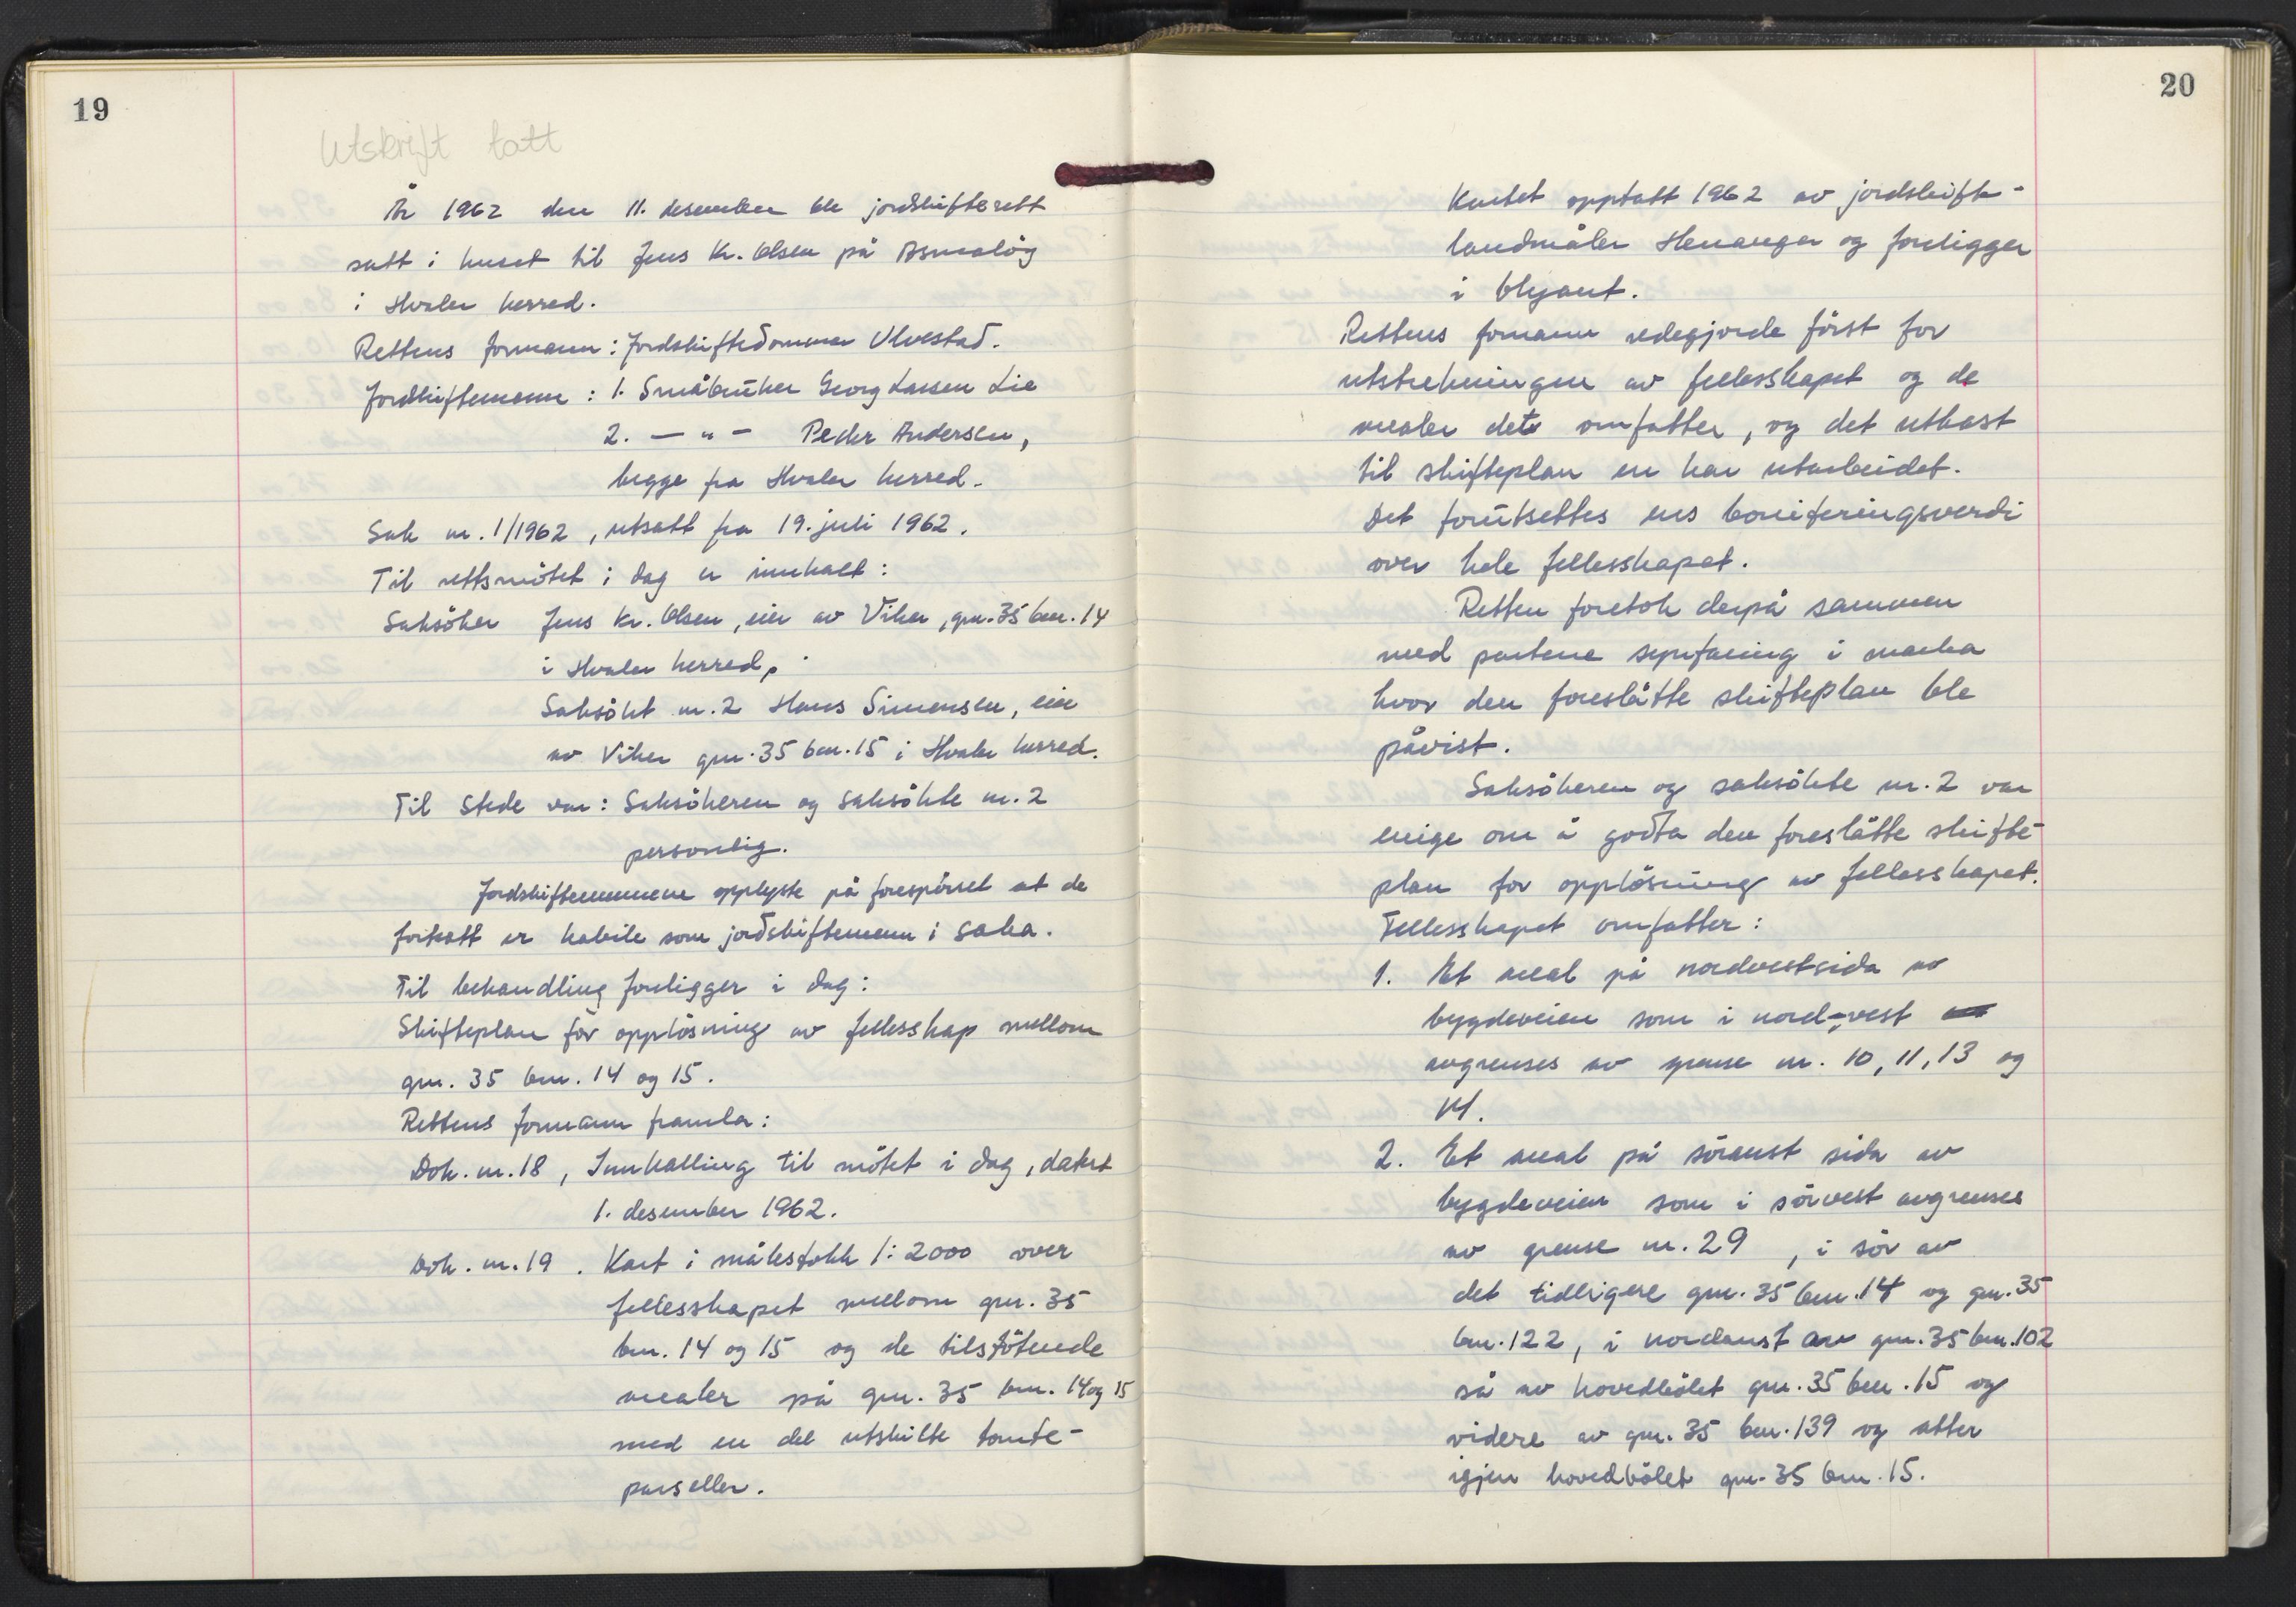 19
Utskrift tatt
År 1962 den 11. desember ble jordskifterett
satt i huset til Jens Kr. Olsen på Asmaløy
i Hvaler herred.
Rettens formann: Jordskiftedommer Ulvestad.
Jordskiftemenn: 1. Småbruker Georg Larsen Lie
2. — " — Peder Andersen,
begge fra Hvaler herred.
Sak nr. 1/1962, utsatt fra 19. juli 1962.
Til rettsmötet i dag er innkalt:
Saksöker Jens Kr. Olsen, eier av Viker, gnr. 35 bnr. 14
i Hvaler herred.
Saksökt nr. 2 Hans Simensen, eier
av Viker gnr. 35 bnr. 15 i Hvaler herred.
Til stede var: Saksökeren og saksökte nr. 2
personlig.
Jordskiftemennene opplyste på forespörsel at de
fortsatt er habile som jordskiftemenn i saka.
Til behandling foreligger i dag:
Skifteplan for opplösning av fellesskap mellom
gnr. 35 bnr. 14 og 15.
Rettens formann framla:
Dok. nr. 18, Innkalling til mötet i dag, datert
1. desember 1962.
Dok. nr. 19. Kart i målestokk 1:2000 over
fellesskapet mellom gnr. 35
bnr. 14 og 15 og de tilstötende
arealer på gnr. 35 bnr. 14 og 15
med en del utskilte tomte-
parseller.
20
Kartet opptatt 1962 av jordskifte-
landmåler Henanger og foreligger
i blyant.
Rettens formann redegjorde först for
utstrekningen av fellesskapet og de
arealer det omfatter, og det utkast
til skifteplan en har utarbeidet.
Det forutsettes ens boniteringsverdi
over hele fellesskapet.
Retten foretok derpå sammen
med partene synfaring i marka
hvor den foreslåtte skifteplan ble
påvist.
Saksökeren og saksökte nr. 2 var
enige om å godta den foreslåtte skifte-
plan for opplösning av fellesskapet.
Fellesskapet omfatter:
1. Et areal på nordvestsida av
bygdeveien som i nord-vest
avgrenses av grense nr. 10, 11, 13 og
14.
2. Et areal på söraust sida av
bygdeveien som i sörvest avgrenses
av grense nr. 29, i sör av
det tidligere gnr. 35 bnr. 14 og gnr. 35
bnr. 122, i nordaust av gnr. 35 bnr. 102
så av hovedbölet gnr. 35 bnr. 15 og
videre av gnr. 35 bnr. 139 og atter
igjen hovedbölet gnr. 35 bnr. 15.